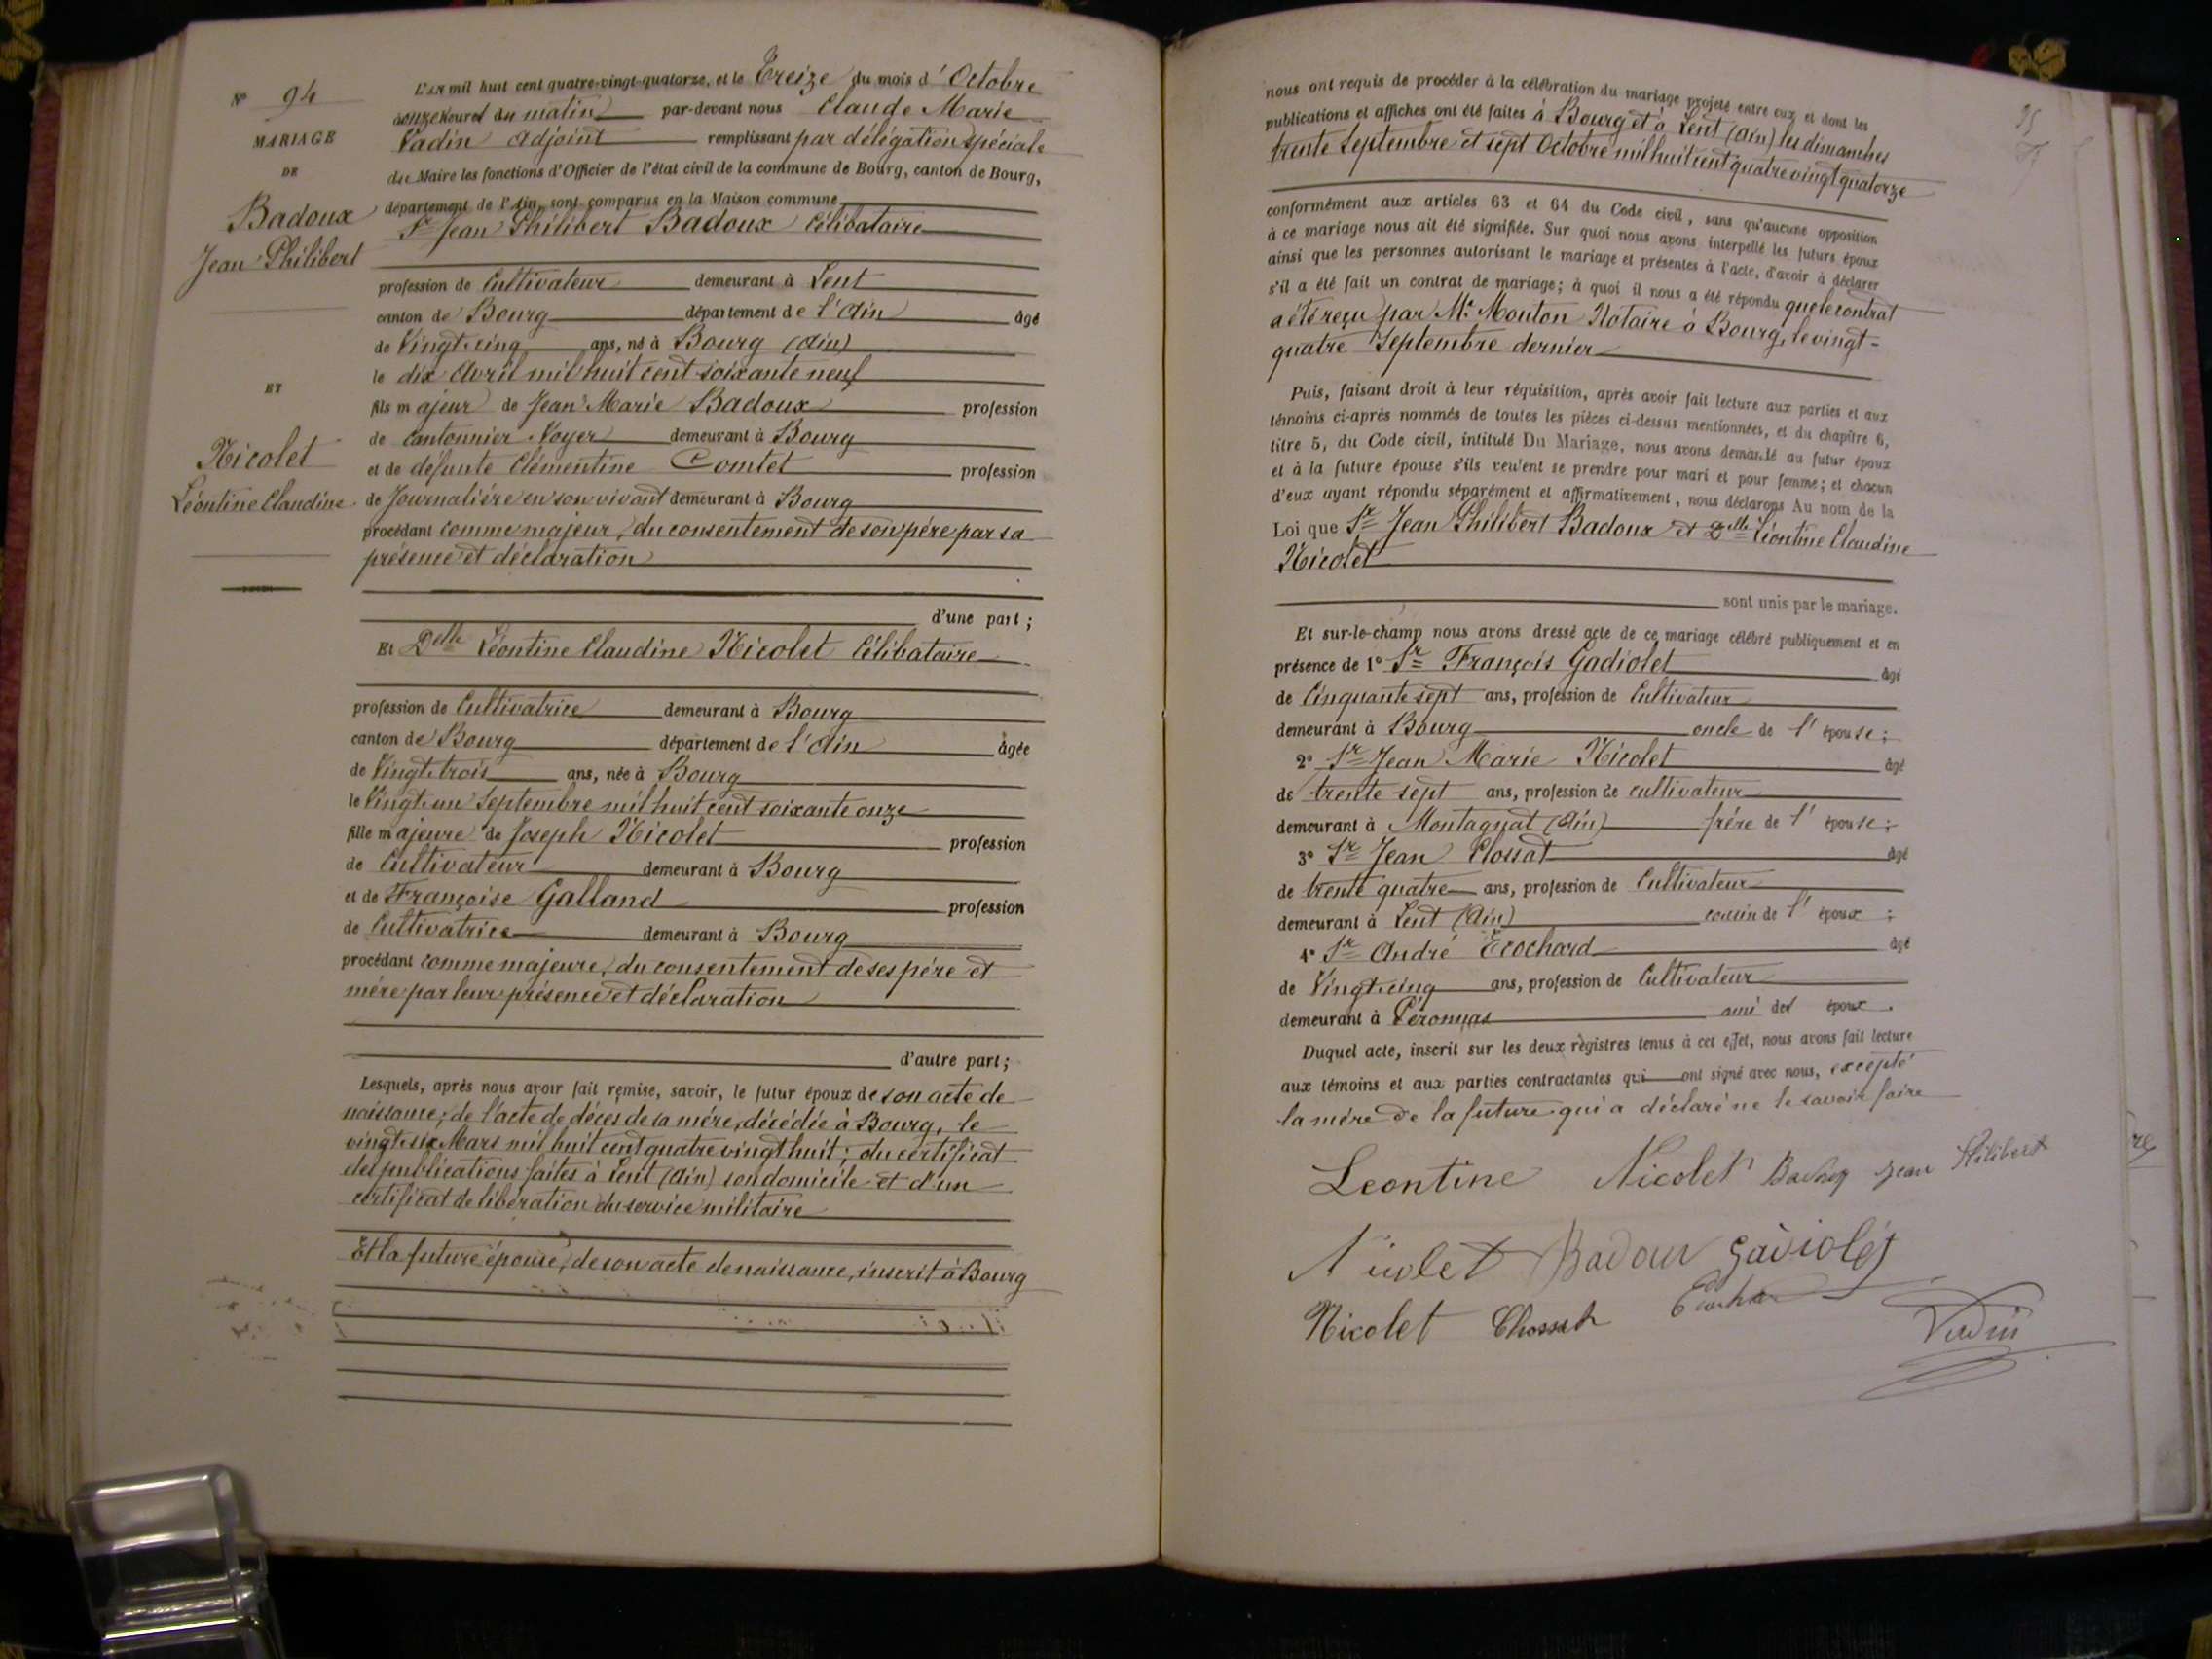 N° 94
MARIAGE
DE
Badoux
Jean Philibert
ET
Nicolet
Léontine Claudine
L'an mil huit cent quatre-vingt-quatorze, et le Treize du mois d'Octobre
à onze heures du matin par-devant nous Claude Marie
adjoint remplissant par délégation spéciale
du Maire les fonctions d'Officier de l'état civil de la commune de Bourg, canton de Bourg,
département de l'Ain, sont comparus en la Maison commune
Sr Jean Philibert Badoux Célibataire
profession de Cultivateur demeurant à Lent
canton de Bourg département de l'Ain âgé
de Vingt-cinq ans, né à Bourg (Ain)
le dix Avril mil huit cent soixante neuf
fils majeur de Jean Marie Badoux profession
de Cantonnier Voyer demeurant à Bourg
et de défunte Clémentine Comtet profession
de Journalière en son vivant demeurant à Bourg
procédant comme majeur, du consentement de son père par sa
présence et déclaration
d'une part ;
Et Delle Léontine Claudine Nicolet Célibataire
profession de Cultivatrice demeurant à Bourg
canton de Bourg département de l'Ain âgée
de Vingt-trois ans, née à Bourg
le Vingt-un Septembre mil huit cent soixante onze
fille majeure de Joseph Nicolet profession
de Cultivateur demeurant à Bourg
et de Françoise Galland profession
de Cultivatrice demeurant à Bourg
procédant comme majeure, du consentement de ses père et
mère par leur présence et déclaration
d'autre part ;
Lesquels, après nous avoir fait remise, savoir, le futur époux de son acte de
naissance ; de l'acte de décès de sa mère, décédée à Bourg, le
vingt-six Mars mil huit cent quatre vingt huit ; du certificat
des publications faites à Lent (Ain) son domicile et d'un
certificat de libération du service militaire
Et la future épouse, de son acte de naissance, inscrit à Bourg
nous ont requis de procéder à la célébration du mariage projeté entre eux et dont les
publications et affiches ont été faites à Bourg et à Lent (Ain) les dimanches
trente Septembre et sept Octobre mil huit cent quatre vingt quatorze
conformément aux articles 63 et 64 du Code civil, sans qu'aucune opposition
à ce mariage nous ait été signifiée. Sur quoi nous avons interpellé les futurs époux
ainsi que les personnes autorisant le mariage et présentes à l'acte, d'avoir à déclarer
s'il a été fait un contrat de mariage ; à quoi il nous a été répondu que le contrat
a été reçu par Me Monton Notaire à Bourg, le vingt-
quatre Septembre dernier
Puis, faisant droit à leur réquisition, après avoir fait lecture aux parties et aux
témoins ci-après nommés de toutes les pièces ci-dessus mentionnées, et du chapitre 6,
titre 5, du Code civil, intitulé Du Mariage, nous avons demandé au futur époux
et à la future épouse s'ils veulent se prendre pour mari et pour femme ; et chacun
d'eux ayant répondu séparément et affirmativement, nous déclarons Au nom de la
Loi que Sr Jean Philibert Badoux et Delle Léontine Claudine
Nicolet
sont unis par le mariage.
Et sur-le-champ nous avons dressé acte de ce mariage célébré publiquement et en
présence de 1° Sr François Gadiolet âgé
de Cinquante sept ans, profession de Cultivateur
demeurant à Bourg oncle de l'épouse ;
2° Sr Jean Marie Nicolet âgé
de trente sept ans, profession de cultivateur
demeurant à Montagnat (Ain) frère de l'épouse ;
3° Sr Jean Clossat âgé
de trente quatre ans, profession de Cultivateur
demeurant à Lent (Ain) cousin de l'époux ;
4° Sr André Ecochard âgé
de Vingt-cinq ans, profession de Cultivateur
demeurant à Péronnas ami des époux.
Duquel acte, inscrit sur les deux registres tenus à cet effet, nous avons fait lecture
aux témoins et aux parties contractantes qui ont signé avec nous, excepté
la mère de la future qui a déclaré ne le savoir faire
Leontine Nicolet Jean Philibert
Nicolet Badoux Gadiolet
Nicolet